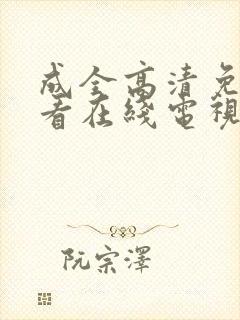 成全高清免
看在綫電視
阮宗澤